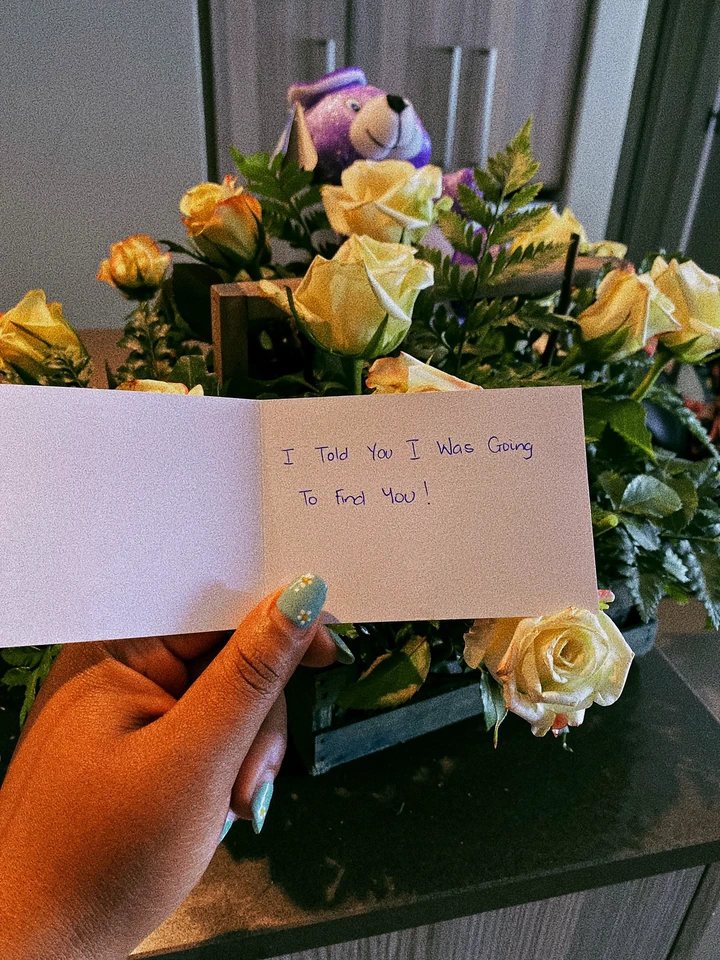 I Told You I Was Going
To Find You!